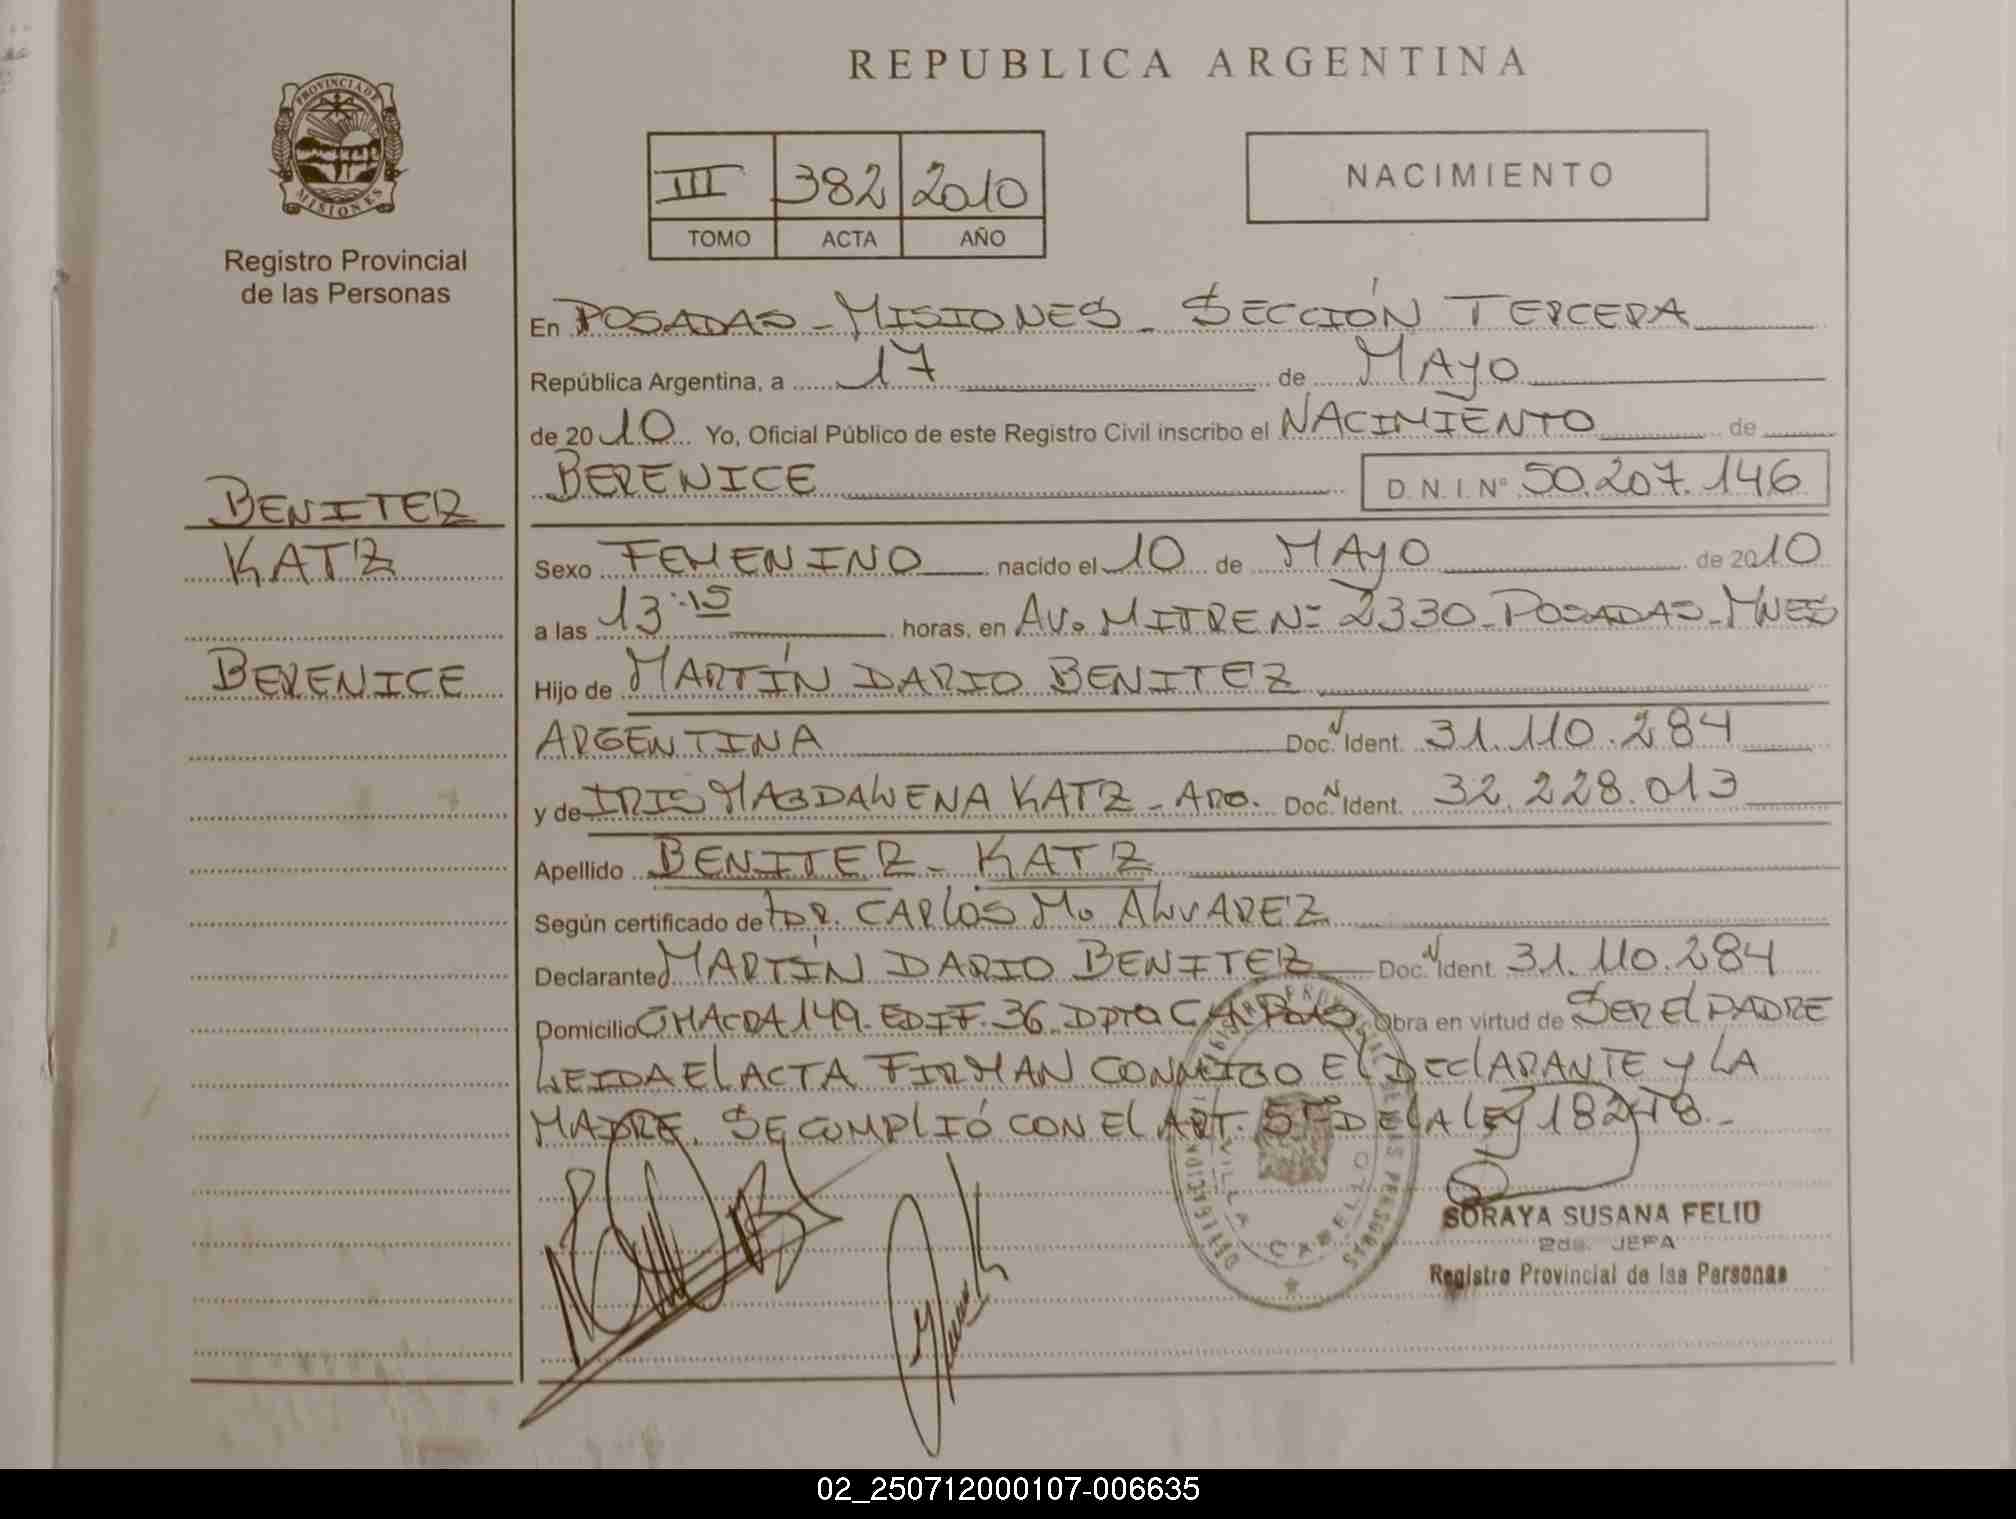 REPUBLICA ARGENTINA
PROVINCIA DE
MISIONES
Registro Provincial
de las Personas
III 382 2010
TOMO ACTA AÑO
NACIMIENTO
En POSADAS - MISIONES - SECCIÓN TERCERA
República Argentina, a 17 de MAYO
de 2010 Yo, Oficial Público de este Registro Civil inscribo el NACIMIENTO de
BERENICE D.N.I. Nº 50.207.146
BENITEZ
KATZ
BERENICE
Sexo FEMENINO nacido el 10 de MAYO de 2010
a las 13:15 horas, en AV. MITRE Nº 2330 - POSADAS - MNES
Hijo de MARTÍN DARIO BENITEZ
ARGENTINA Doc. N Ident. 31.110.284
y de IRIS MAGDALENA KATZ - ARG. Doc. N Ident. 32.228.013
Apellido BENITEZ - KATZ
Según certificado de DR. CARLOS M. ALVAREZ
Declarante MARTÍN DARIO BENITEZ Doc. N Ident. 31.110.284
Domicilio CHACRA 149. EDIF. 36. DPTO C Obra en virtud de SER EL PADRE
LEIDA EL ACTA FIRMAN CONMIGO EL DECLARANTE Y LA
MADRE. SE CUMPLIÓ CON EL ART. 5º DE LA LEY 18248.-
VILLA CABELLO
SORAYA SUSANA FELIU
2da. JEFA
Registro Provincial de las Personas
02_250712000107-006635